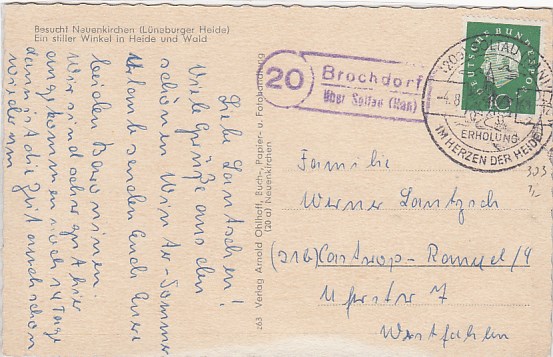 Besucht Neuenkirchen (Lüneburger Heide)
Ein stiller Winkel in Heide und Wald
Liebe Lantschen!
Viele Grüße aus den
schönen Winter-Sommer
Urlaub senden Euch Eure
beiden
Wir sind sehr gut hier
angekommen noch 14 Tage
dann ist die Zeit auch schon
wieder um
263 Verlag Arnold Ohlhoff, Buch-, Papier- u. Fotohandlung
(20 a) Neuenkirchen
20
Brochdorf
über Soltau (Han)
DEUTSCHE BUNDESPOST
10
SOLTAU
-4.8
ERHOLUNG
IM HERZEN DER HEIDE
Familie
Werner Lantzsch
(21b) Castrop-Rauxel/4
Uferstr 7
Westfalen